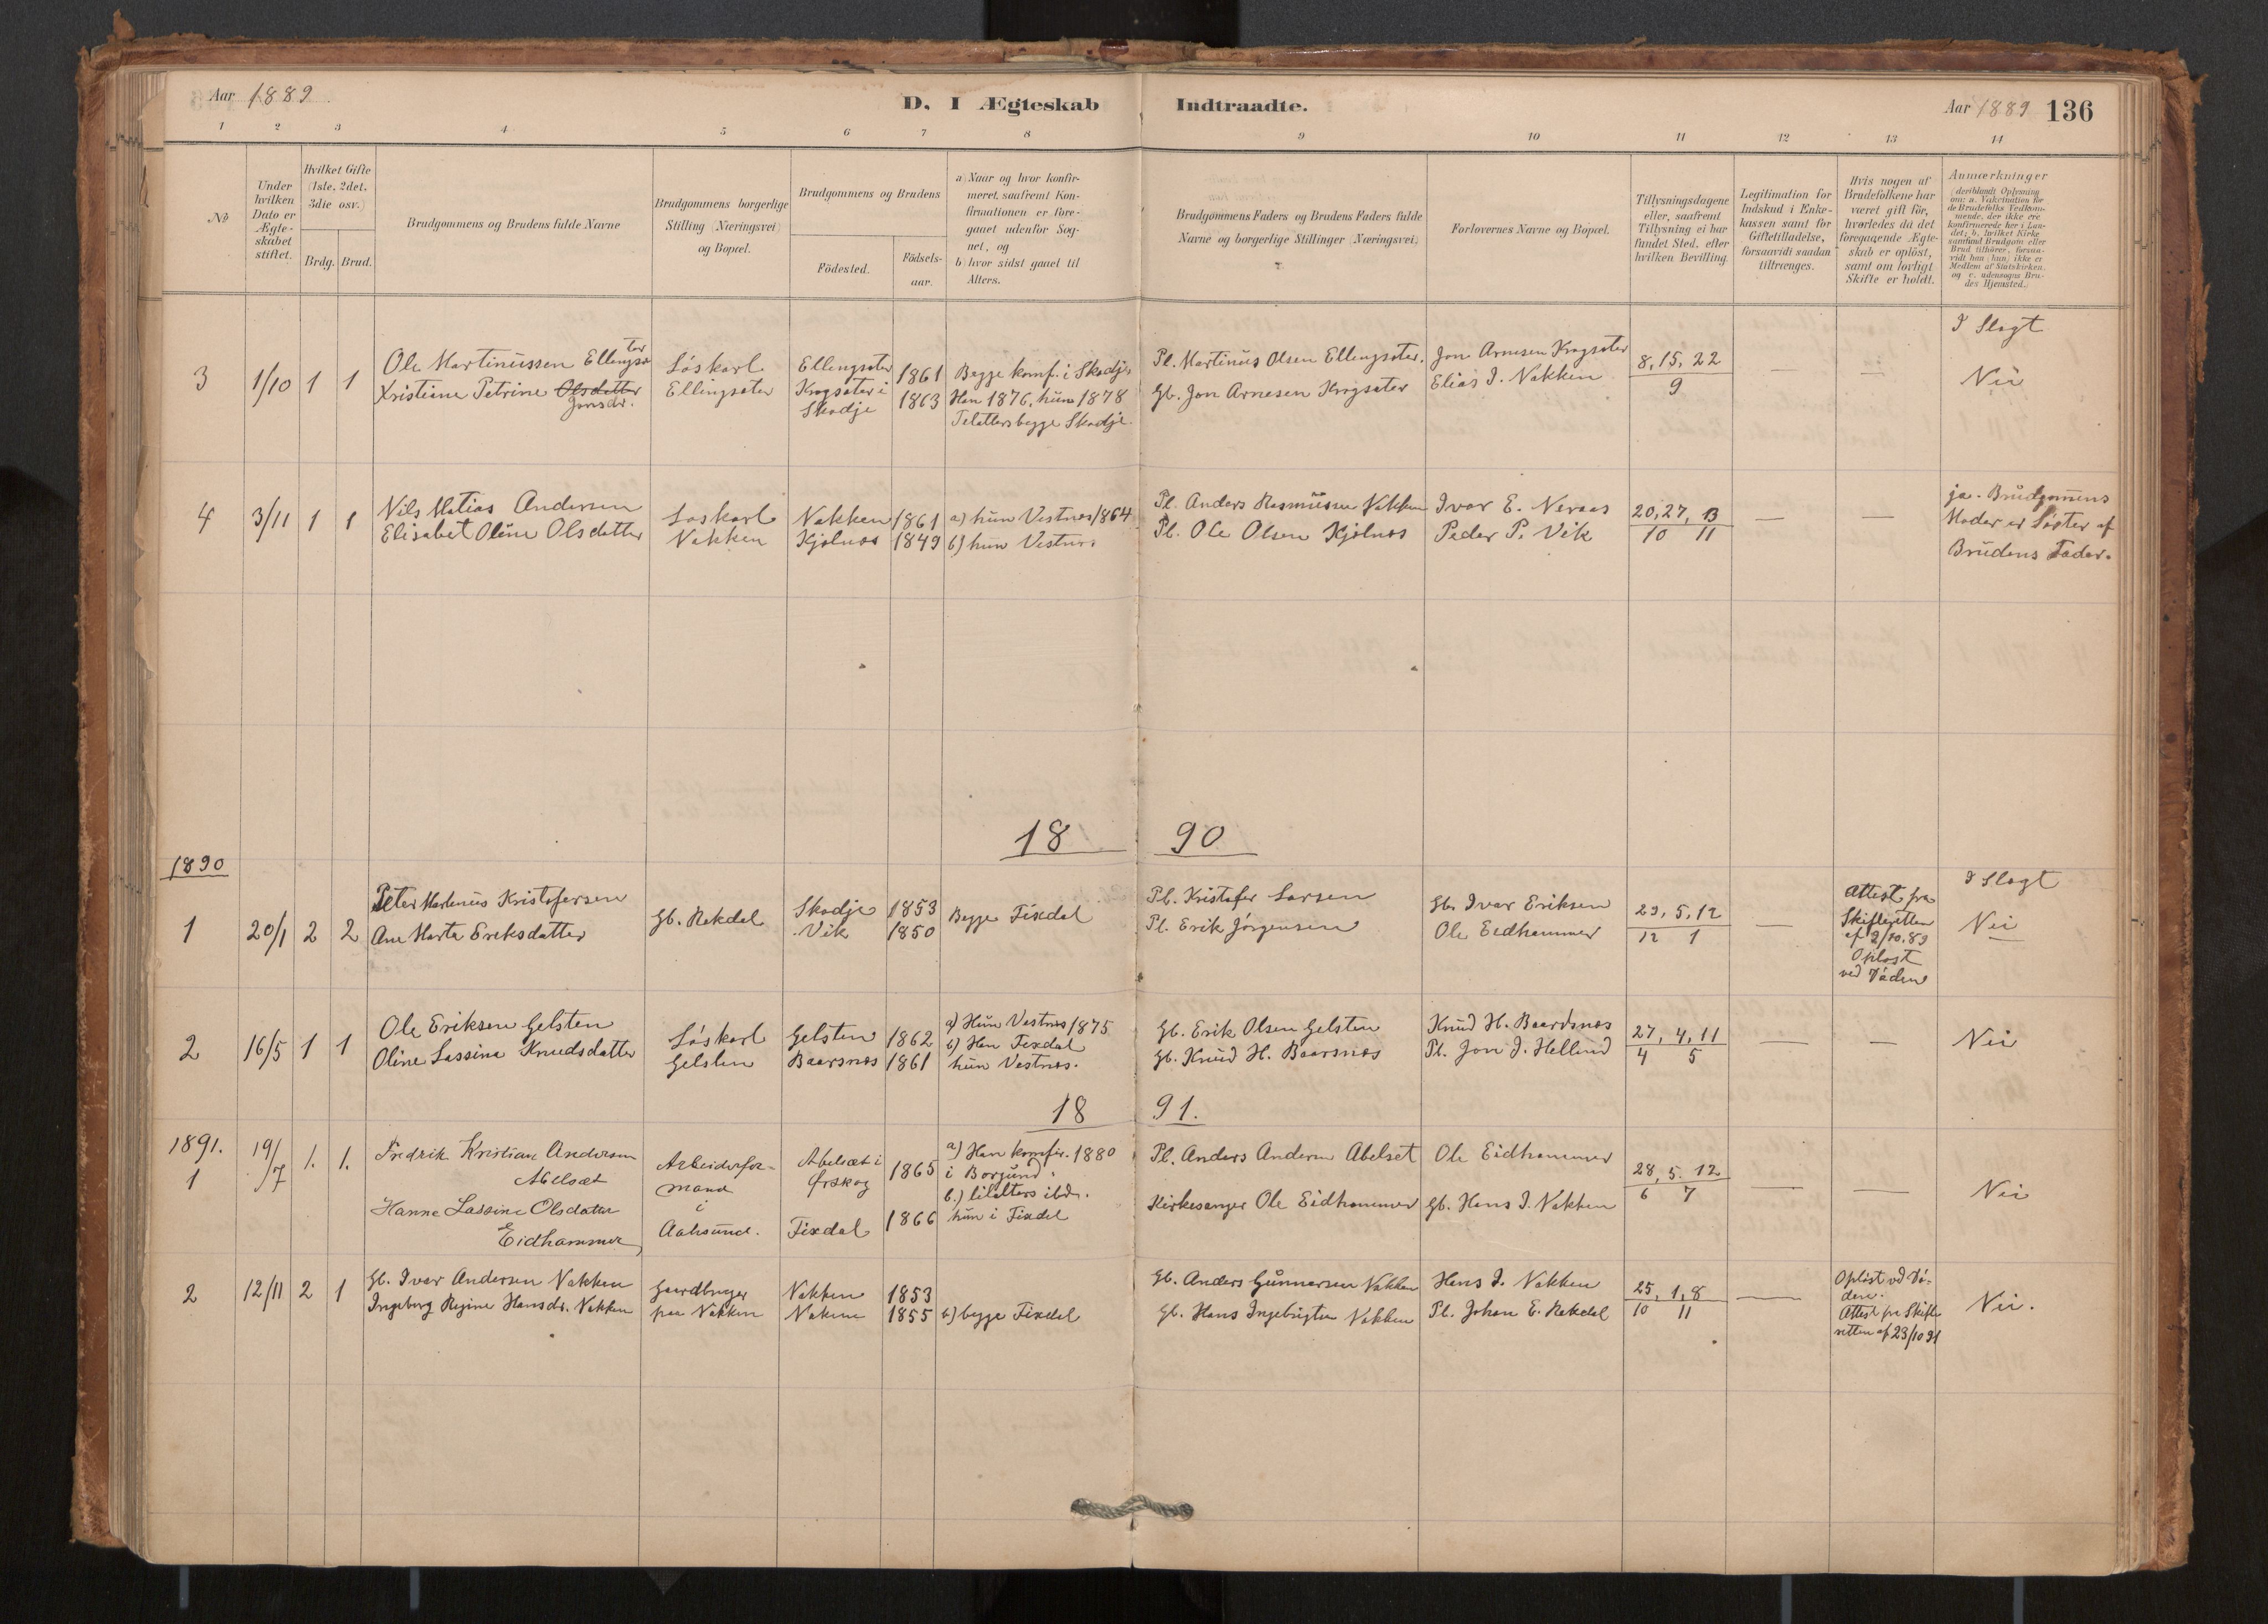 Aar 1889
D. I Ægteskab Indtraadte.
Aar 1889 136
1 2 3 4 5 6 7 8 9 10 11 12 13 14
No
Under hvilken Dato er Ægteskabet stiftet.
Hvilket Gifte (1ste, 2det, 3die osv.)
Brdg. Brud.
Brudgommens og Brudens fulde Navne
Brudgommens borgerlige Stilling (Næringsvei) og Bopæl.
Brudgommens og Brudens
Födested.
Födsels-aar.
a) Naar og hvor konfir-
meret, saafremt Kon-
firmationen er fore-
gaaet udenfor Sog-
net, og
b) hvor sidst gaaet til
Alters.
Brudgommens Faders og Brudens Faders fulde
Navne og borgerlige Stillinger (Næringsvei)
Forlovernes Navne og Bopæl.
Tillysningsdagene
eller, saafremt
Tillysning ei har
fundet Sted, efter
hvilken Bevilling
Legitimation for
Indskud i Enke-
kassen samt for
Giftetilladelse,
forsaavidt saadan
tiltrænges.
Hvis nogen af
Brudefolkene har
været gift för,
hvorledes da det
foregaaende Ægte-
skab er oplöst,
samt om lovligt
Skifte er holdt.
Anmærkninger
(deriblandt Oplysning
om: a. Vakcination for
de Brudefolks Vedkom-
mende, der ikke ere
konfirmerede her i Lan-
det; b. hvilket Kirke-
samfund Brudgom eller
Brud tilhörer, forsaa-
vidt han (hun) ikke er
Medlem af Statskirken,
og c. udensogns Bru-
des Hjemsted.)
3 1/10 1 1
Ole Martinussen Ellingsæter
Kristiane Petrine Olsdatter
Jonsdr.
Löskarl
Ellingsæter
Ellingsæter
Krogsæter i
Skodje
1861
1863
Begge konf. i Skodje
Han 1876, hun 1878
Telalters begge Skodje.
Pl. Martinus Olsen Ellingsæter.
Gb. Jon Arnesen Krogsæter
Jon Arnesen Krogsæter
Elias I. Nakken
8, 15, 22
9
— —
I Slægt
Nei
4 3/11 1 1
Nils Matias Andersen
Elisabet Oline Olsdatter
Löskarl
Nakken
Nakken
Kjelnæs
1861
1849
a) hun Vestnes 1864
b) hun Vestnes
Pl. Anders Rasmussen Nakken
Pl. Ole Olsen Kjelnæs
Ivar E. Neraas
Peder P. Vik
20, 27, 13
10 11
— —
ja. Brudgommens
Moder er Söster af
Brudens Fader.
18 90
1890
1 20/1 2 2
Peter Martinus Kristofersen
Ane Marta Eriksdatter
Gb. Rekdal
Skodje
Vik
1853
1850
Begge Fixdal
Pl. Kristofer Larsen
Pl. Erik Jörgensen
Gb. Ivar Eriksen
Ole Eidhammer
29, 5, 12
12 1
—
Attest fra
Skifteretten
af 2/10.89
Oplöst
ved Döden
I Slægt
Nei
2 16/5 1 1
Ole Eriksen Gelsten
Oline Lassine Knudsdatter
Löskarl
Gelsten
Gelsten
Baarsnæs
1862
1861
a) Hun Vestnes 1875
b) Han Fixdal
hun Vestnes.
Gb. Erik Olsen Gelsten
Gb. Knud H. Baarsnæs
Knud H. Baardsnæs
Pl. Jon J. Hellend
27, 4, 11
4 5
— —
Nei
18 91.
1891.
1 19/7 1. 1.
Fredrik Kristian Andersen
Abelsæt
Hanne Lassine Olsdatter
Eidhammer
Arbeiderfor-
mand
i
Aalesund.
Abelsæt i
Ørskog
Fixdal
1865
1866
a) Han konfir. 1880
i Borgund
b.) tilalters ibd.
hun i Fixdal
Pl. Anders Andersen Abelset
Kirkesanger Ole Eidhammer
Ole Eidhammer
Gb. Hans I. Nakken
28, 5. 12
6 7
— —
Nei
2 12/11 2 1
Gb. Ivar Andersen Nakken
Ingeborg Regine Hansdr. Nakken
Gaardbruger
paa Nakken
Nakken
Nakken
1853
1855
b) begge Fixdal
Gb. Anders Gunnarsen Nakken
Gb. Hans Ingebrigtsen Nakken
Hans I. Nakken
Pl. Johan E. Rekdal
25, 1, 8
10 11
—
Oplöst ved Dö-
den.
Attest fra Skifte
retten af 23/10 91
Nei.